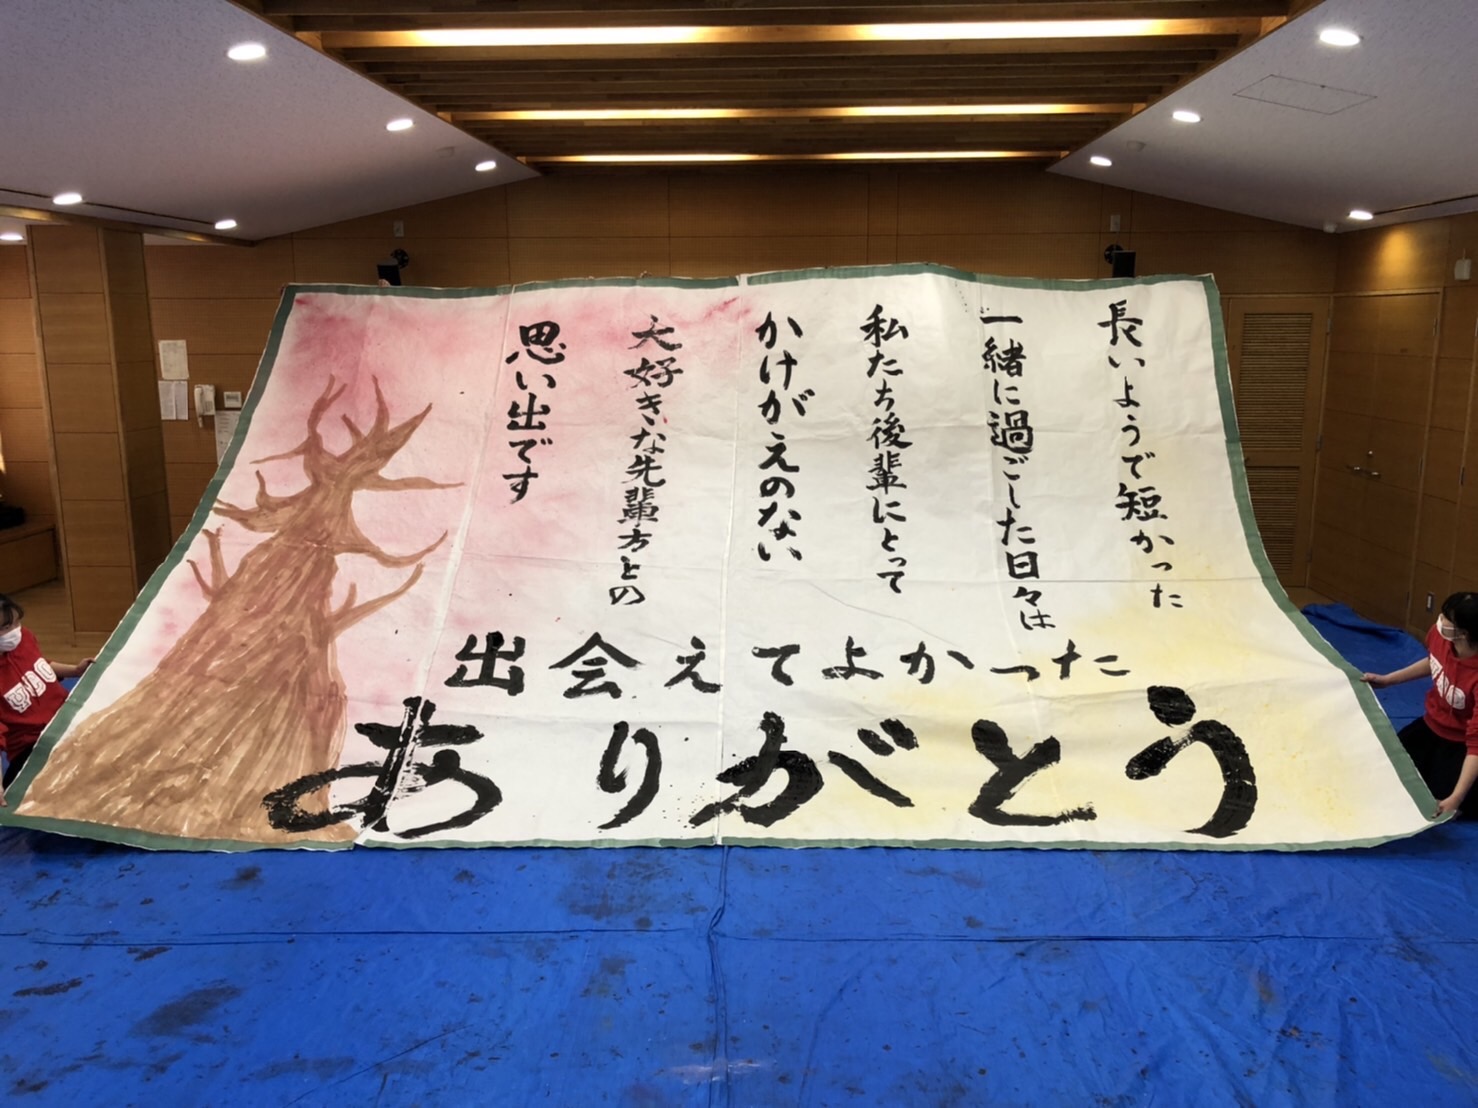 長いようで短かった
一緒に過ごした日々は
私たち後輩にとって
かけがえのない
大好きな先輩方との
思い出です
出会えてよかった
ありがとう